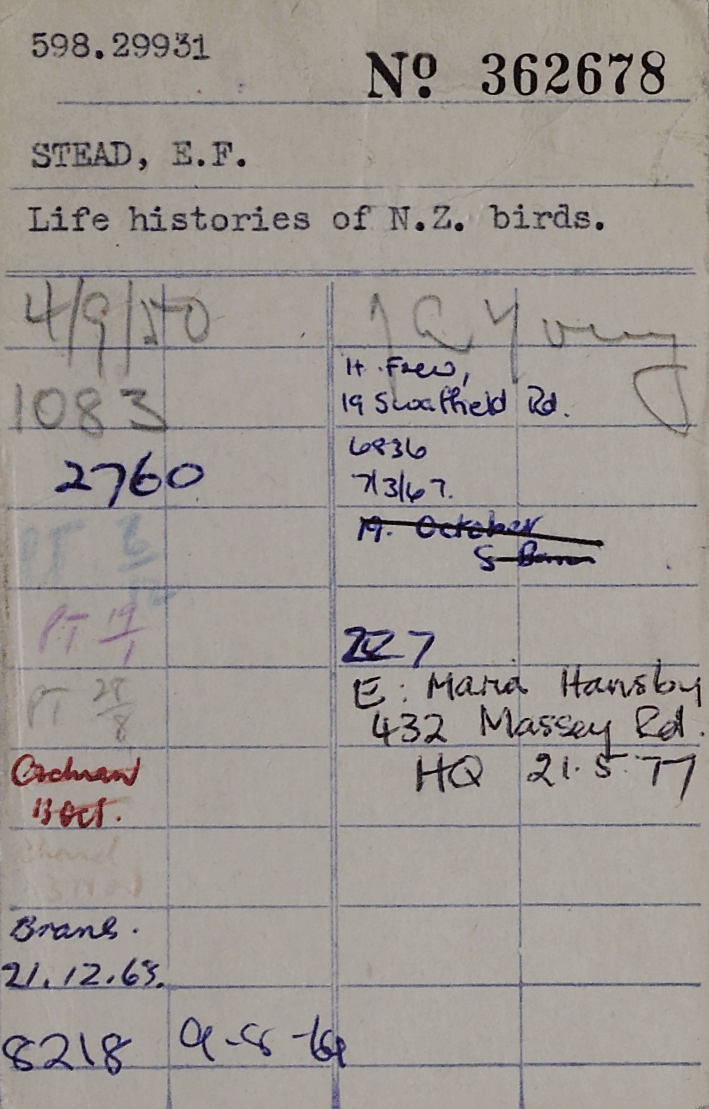 598.29931
Nº 362678
STEAD, E.F.
Life histories of N.Z. birds.
4/9/50
1083
2760
PT 8/12
PT 19/1
PT 28/8
Cochran
13 Oct.
Brans.
21.12.63.
8218 9-8-
J Q Young
H. Frew,
19 Swaffield Rd.
6836
7/3/67.
19. October
S
7
E. Maria Hansby
432 Massey Rd.
HQ 21.5.77